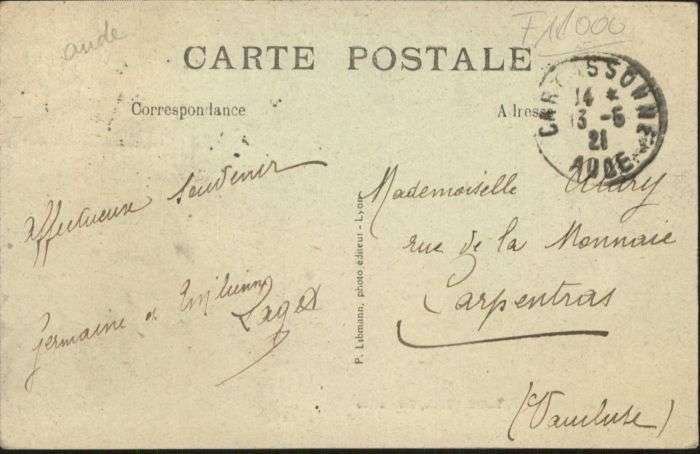 aude
F 11000
CARTE POSTALE
Correspondance
Adresse
CARCASSONNE
14 *
13 -5
21
AUDE
affectueux souvenir
Germaine et Emilienne
Lagot
P. Labmann, photo éditeur - Lyon
Mademoiselle
rue de la Monnaie
Carpentras
(Vaucluse)